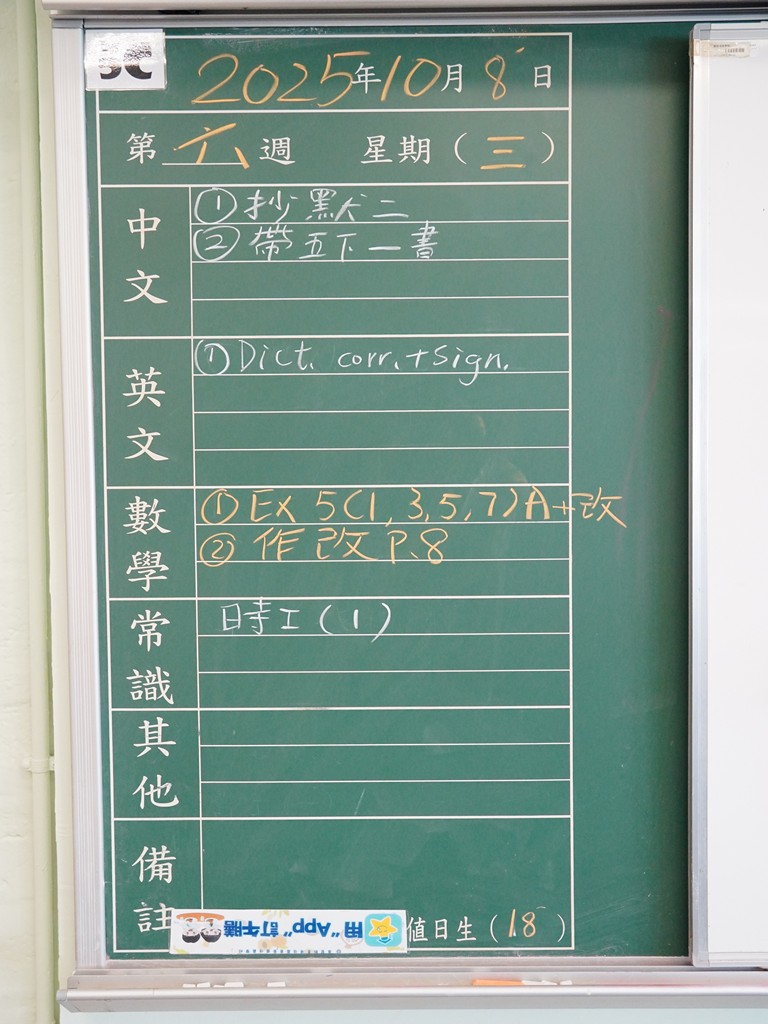 5C
2025年10月8日
第六週 星期(三)
中文
①抄默二
②帶五下一書
英文
①Dict. corr.+sign.
數學
①Ex 5(1,3,5,7)A+改
②作改P.8
常識
時工(1)
其他
備註
用"App"訂午膳
值日生(18)